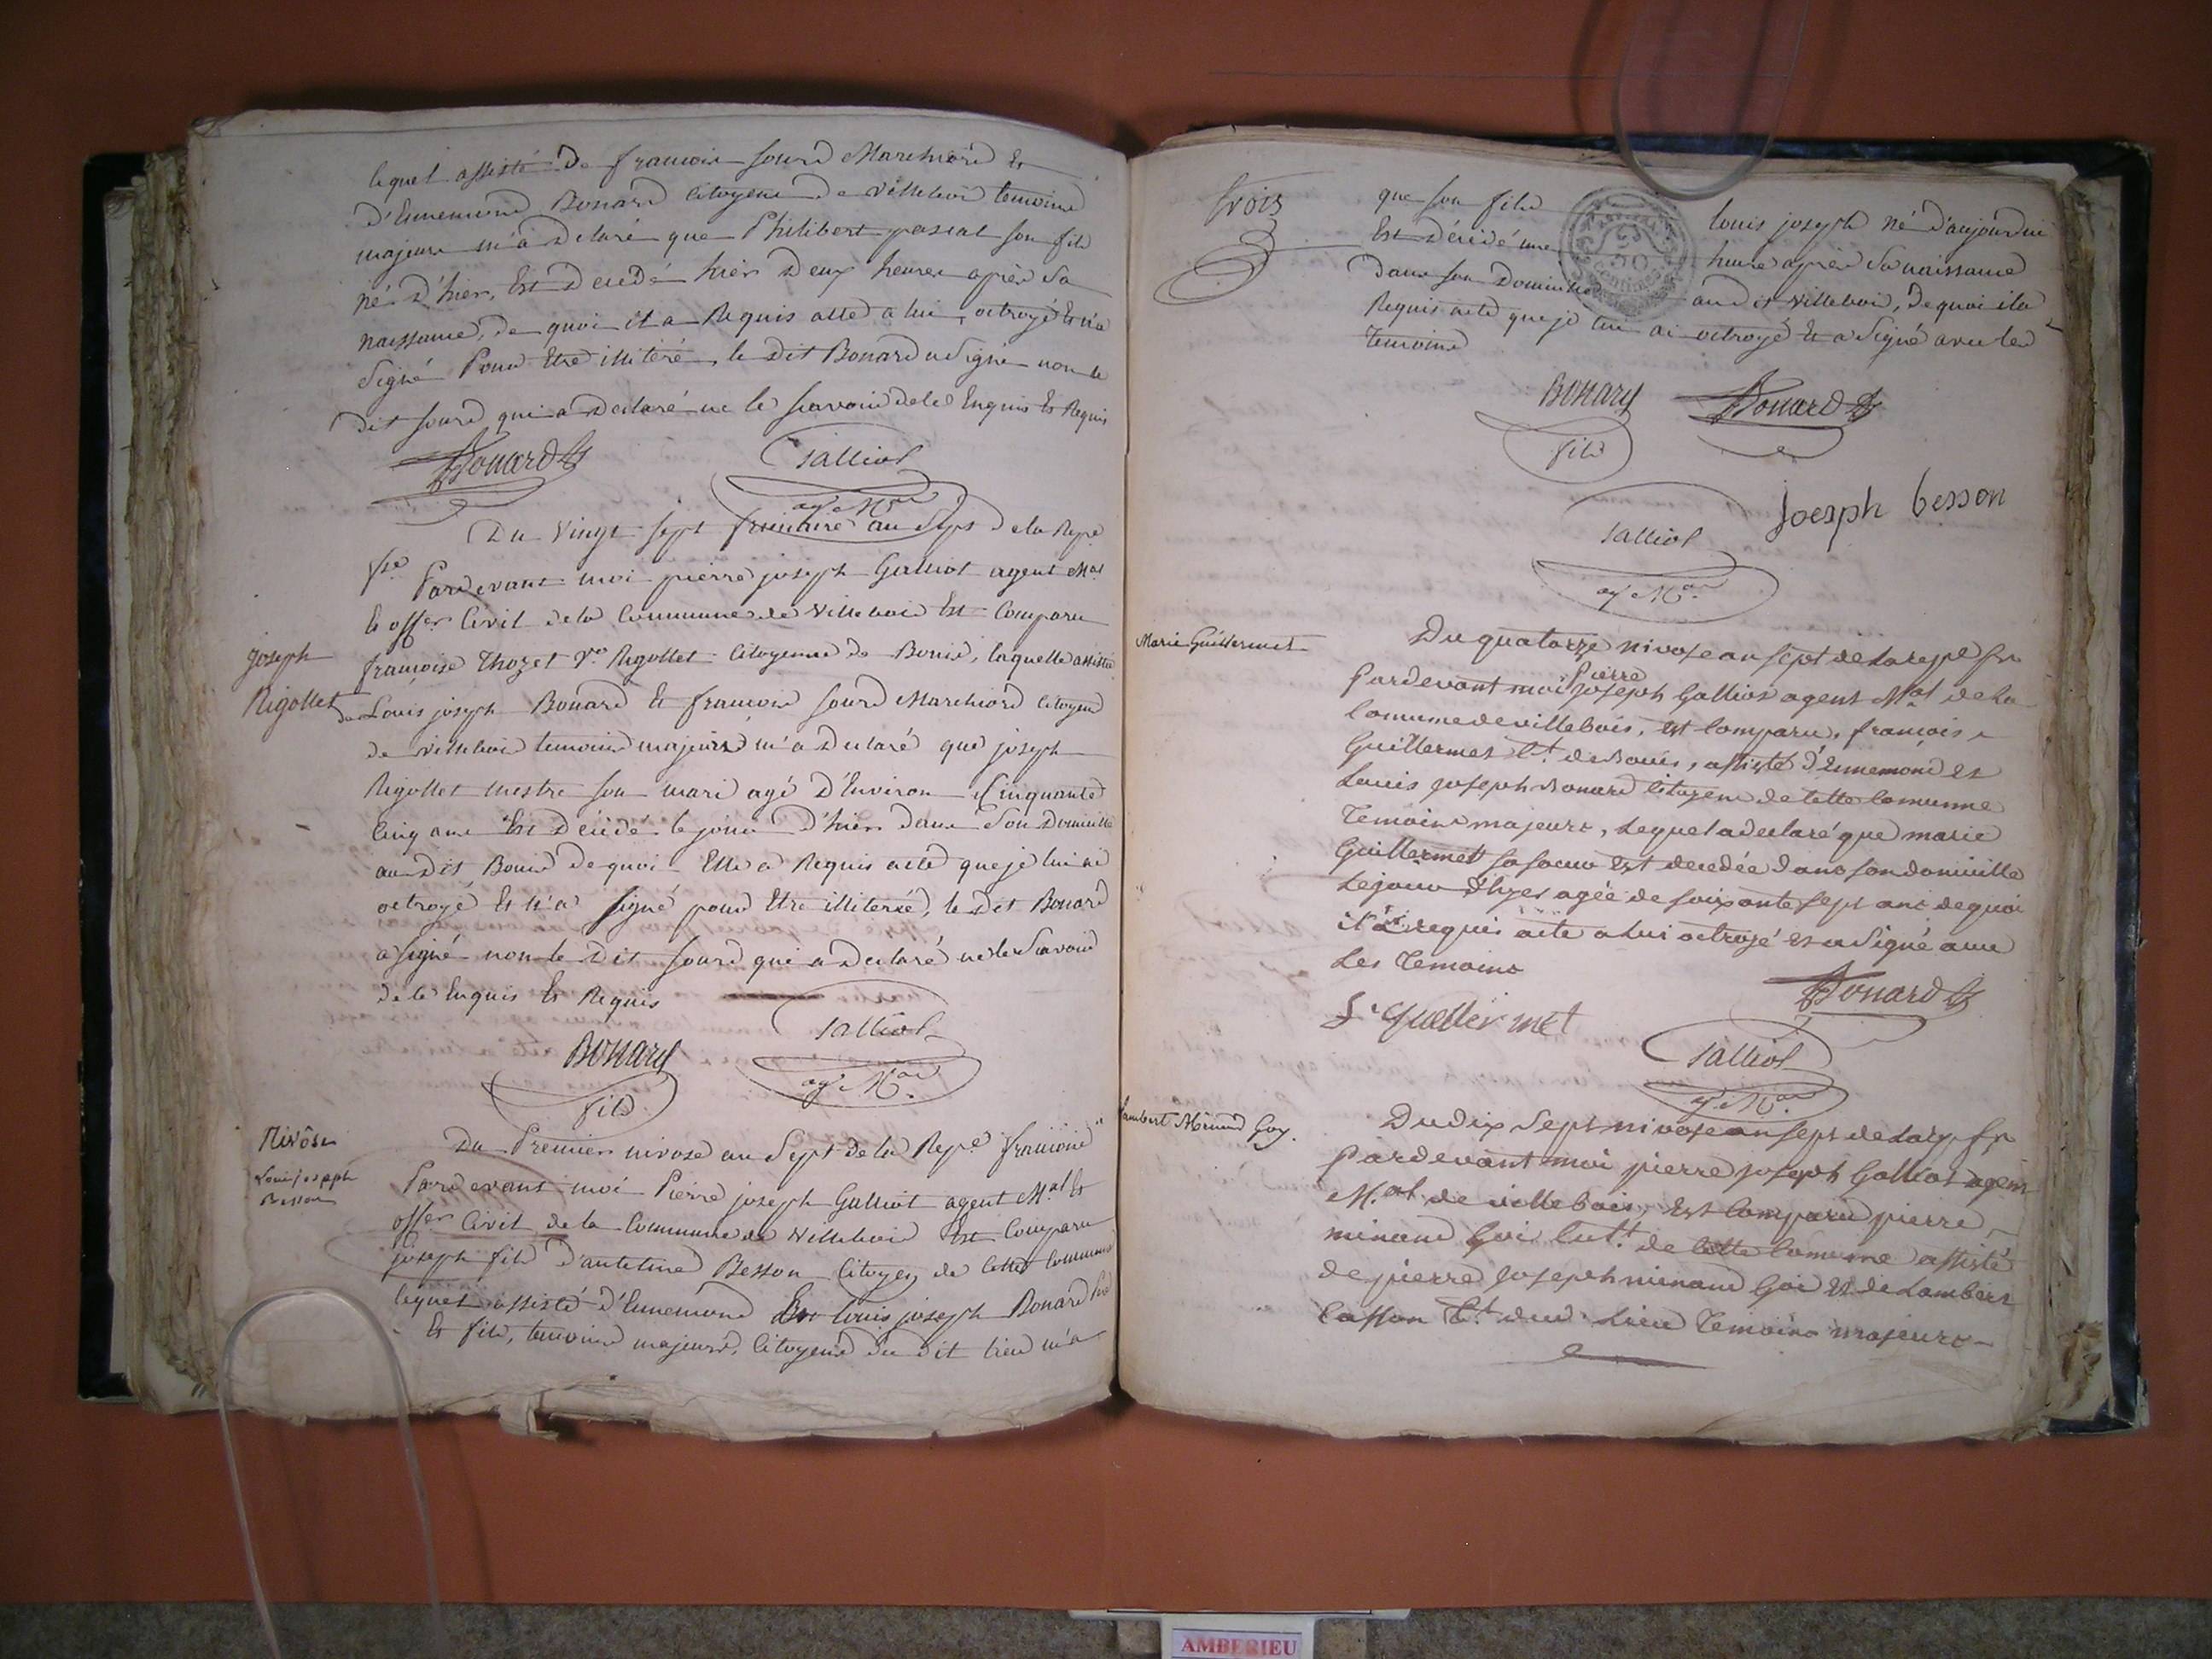 lequel assisté de francois sourd Marchiord Et
d'Ennemond Bonard Citoyens de villebois temoins
majeurs m'a declaré que Philibert pascal son fils
né d'hier, Est decédé hier deux heures après sa
naissance, de quoi il a Requis acte a lui octroyé Et n'a
signé Pour Etre illitéré, le dit Bonard a signé non le
dit sourd qui a declaré ne le scavoir de ce Enquis Et Requis
Bonard
Galliot
ag. M.al
Du vingt sept frimaire an sept de la Repe
fse Pardevant moi pierre joseph Galliot agent M.al
Et offer Civil de la Commune de villebois Est Comparu
joseph
Rigollet
françoise Thozet ve Rigollet Citoyenne de Bouis, laquelle assistée
de Louis joseph Bonard Et francois sourd Marchiord Citoyens
de villebois temoins majeurs m'a declaré que joseph
Rigollet mestre son mari agé d'Environ Cinquante
Cinq ans Est decédé le jour d'hier dans son Domicille
au dit Bouis de quoi Elle a Requis acte que je lui ai
octroyé Et n'a signé pour Etre illiterée, le dit Bonard
a signé non le dit sourd qui a declaré ne le scavoir
de ce Enquis Et Requis
Bonard
fils
Galliot
ag. M.al
Nivôse
Louis joseph
Besson
Du Premier nivose an sept de la Repe francoise
Pardevant moi Pierre joseph Galliot agent M.al Et
offer Civil de la Commune de villebois Est Comparu
joseph fils d'antelme Besson Citoyen de Cette Commune
lequel assisté d'Ennemond Et louis joseph Bonard
Et fils, temoins majeurs, Citoyens du dit lieu m'a
trois
que son fils louis joseph né d'aujourdui
Est décédé une heure après sa naissance
dans son Domicille au dit villebois, de quoi il a
Requis acte que je lui ai octroyé Et a signé avec les
temoins
Bonard
fils
Bonard
joesph besson
Galliot
ag. M.al
Marie Guillermet
Du quatorze nivose an sept de la repe fr
Pierre
Pardevant moi joseph Galliot agent M.al de la
Comune de villebois, est Comparu, francois
Guillermet Ct. de Bouis, assisté d'Ennemond et
Louis joseph Bonard Citoyens de Cette Comunne
Temoins majeurs, Lequel a declaré que marie
Guillermet sa soeur est decedée dans son domicille
Le jour d'hyer agée de soixante sept ans de quoi
il a requis acte a lui octroyé et a signé avec
Les Temoins
f. Guillermet
Bonard
Galliot
ag. M.al
Lambert Minand Goy.
Du dix Sept nivose an sept de la rep. fr
Pardevant moi pierre joseph Galliot agent
M.al de villebois, Est Comparu pierre
minand Goi Cult. de Cette Comune assisté
de pierre joseph minand Goi et de Lambert
Casson Ct. dud. Lieu Temoins majeurs
AMBERIEU